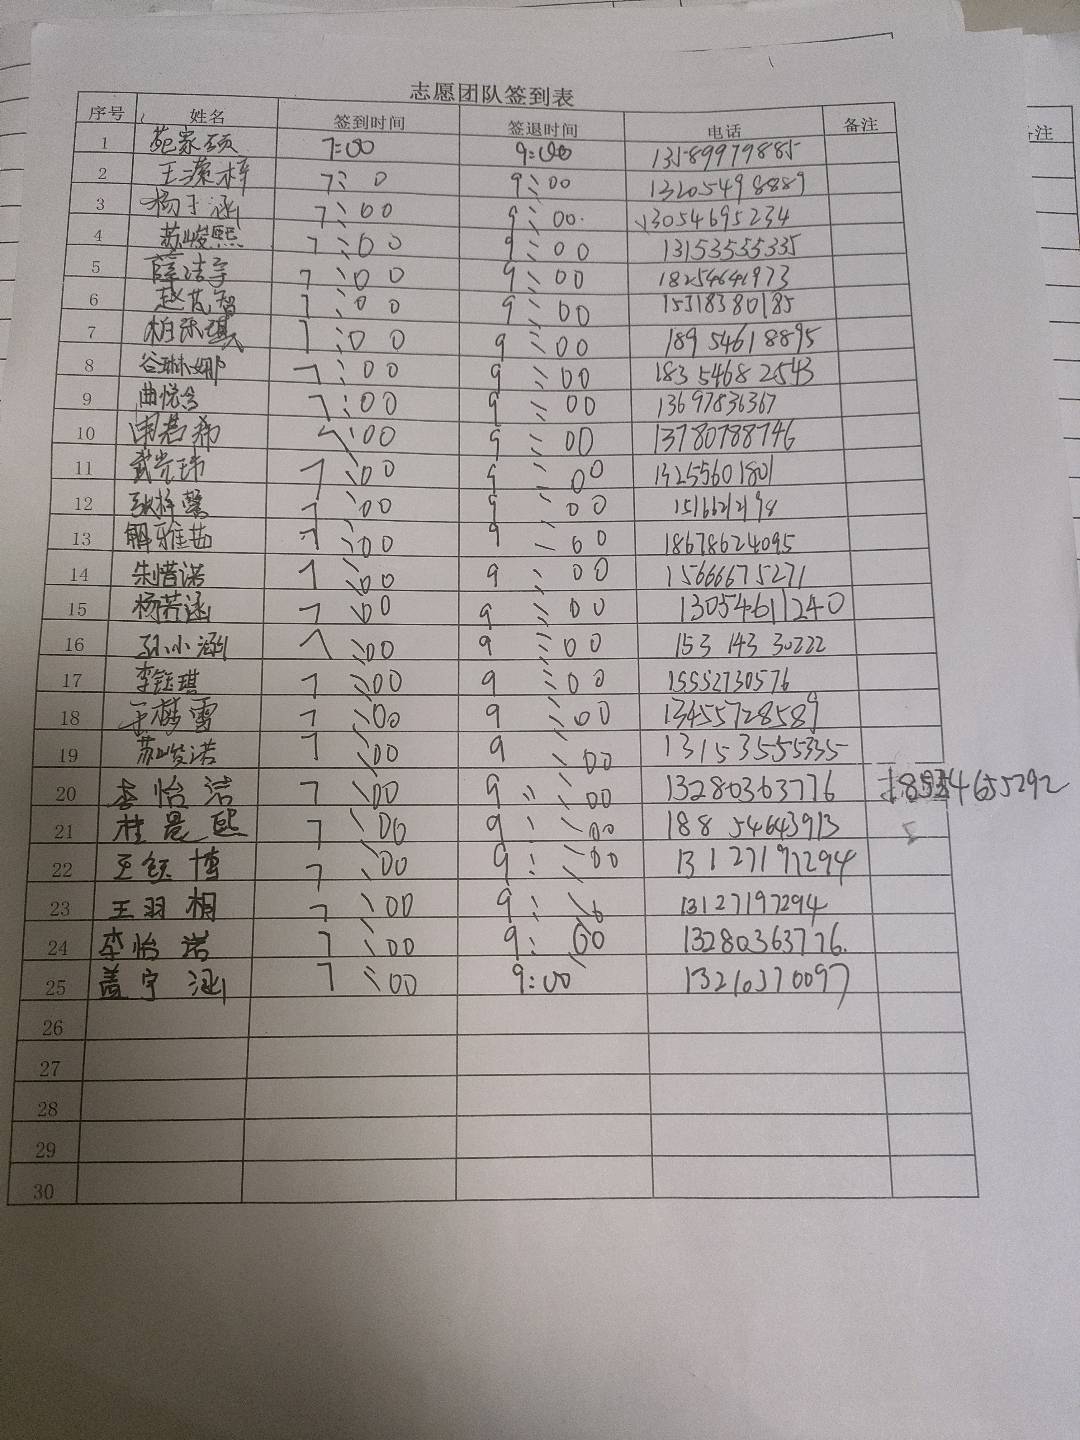 志愿团队签到表
序号 姓名 签到时间 签退时间 电话 备注
1 苑家硕 7:00 9:00 13589979885
2 王 梓 7:0 9:00 13205498889
3 杨子涵 7:00 9:00. 13054695234
4 苏峻熙 7:00 9:00 13153555335
5 薛洁宇 7:00 9:00 18254641973
6 赵 智 7:00 9:00 15318380185
7 柏 琪 7:00 9:00 18954618895
8 谷琳娜 7:00 9:00 18354682543
9 曲悦含 7:00 9:00 13697836367
10 若希 7:00 9:00 13780788746
11 武 玮 7:00 9:00 13255601801
12 张梓馨 7:00 9:00
13 解雅茹 7:00 9:00 18678624095
14 朱惜诺 7:00 9:00 15666675271
15 杨芳涵 7:00 9:00 13054611240
16 孙小涵 7:00 9:00 153 143 30222
17 李钰琪 7:00 9:00 15552730576
18 王梦雪 7:00 9:00 13455728589
19 苏峻诺 7:00 9:00 13153555335
20 李怡洁 7:00 9:00 13280363776
21 杜昱熙 7:00 9:00 188 54643913
22 王钰博 7:00 9:00 13127197294
23 王羽桐 7:00 9:0 13127197294
24 李怡诺 7:00 9:00 13280363776.
25 盖宇涵 7:00 9:00 13210370097
26
27
28
29
30
备注